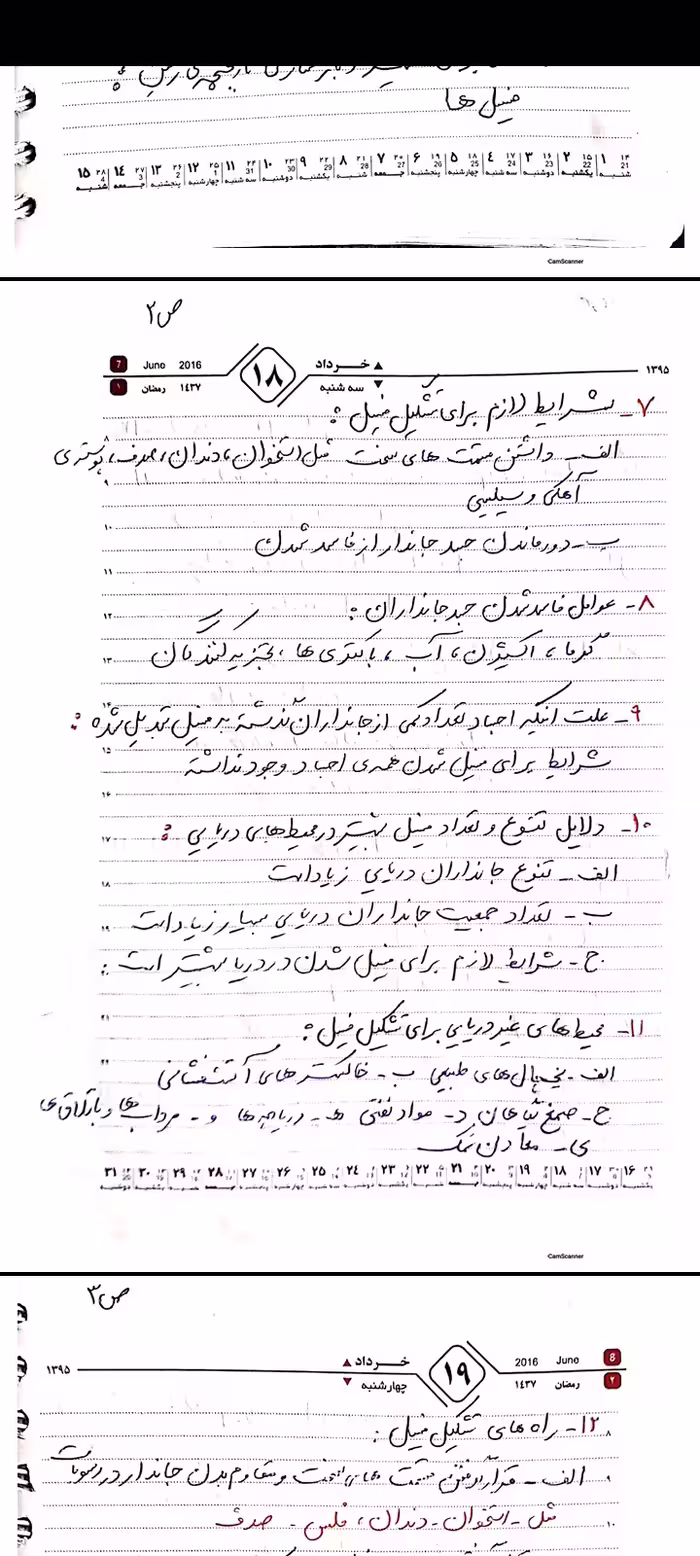 فسیل ها
۱ ۲ ۳ ۴ ۵ ۶ ۷ ۸ ۹ ۱۰ ۱۱ ۱۲ ۱۳ ۱۴ ۱۵
CamScanner
ص۲
۱۳۹۵ ▲ خــرداد ۱۸ 2016 June 7
▼ سه شنبه ۱٤۳۷ رمضان ۱
۷_ شرایط لازم برای تشکیل فسیل :
الف_ داشتن قسمت های سخت مثل استخوان، دندان، صدف، پوسته ی
آهکی و سیلیسی
ب_ دور ماندن جسد جاندار از فاسد شدن
۸- عوامل فاسد شدن جسد جانداران :
گرما، اکسیژن، آب، باکتری ها، تجزیه کنندگان
۹_ علت اینکه اجساد تعداد کمی از جانداران گذشته به فسیل تبدیل شده :
شرایط برای فسیل شدن همه ی اجساد وجود نداشته
۱۰_ دلایل تنوع و تعداد فسیل بیشتر در محیط های دریایی :
الف_ تنوع جانداران دریایی زیاد است
ب_ تعداد جمعیت جانداران دریایی بسیار زیاد است
ج- شرایط لازم برای فسیل شدن در دریا بیشتر است :
۱۱- محیط های غیر دریایی برای تشکیل فسیل :
الف_ یخچال های طبیعی ب_ خاکستر های آتشفشانی
ج_ صمغ گیاهان د_ مواد نفتی هـ_ دریاچه ها و_ مرداب ها و باتلاق های
ی_ معادن نمک
۱۶ ۱۷ ۱۸ ۱۹ ۲۰ ۲۱ ۲۲ ۲۳ ۲٤ ۲۵ ۲۶ ۲۷ ۲۸ ۲۹ ۳۰ ۳۱
CamScanner
ص۳
8 June 2016 ۱۹ خــرداد ▲ ۱۳۹۵
۲ رمضان ۱٤۳۷ چهارشنبه ▼
۱۲_ راه های تشکیل فسیل :
الف_ قرار گرفتن قسمت های سخت و مقاوم بدن جاندار در رسوبات
مثل _ استخوان _ دندان، فلس _ صدف